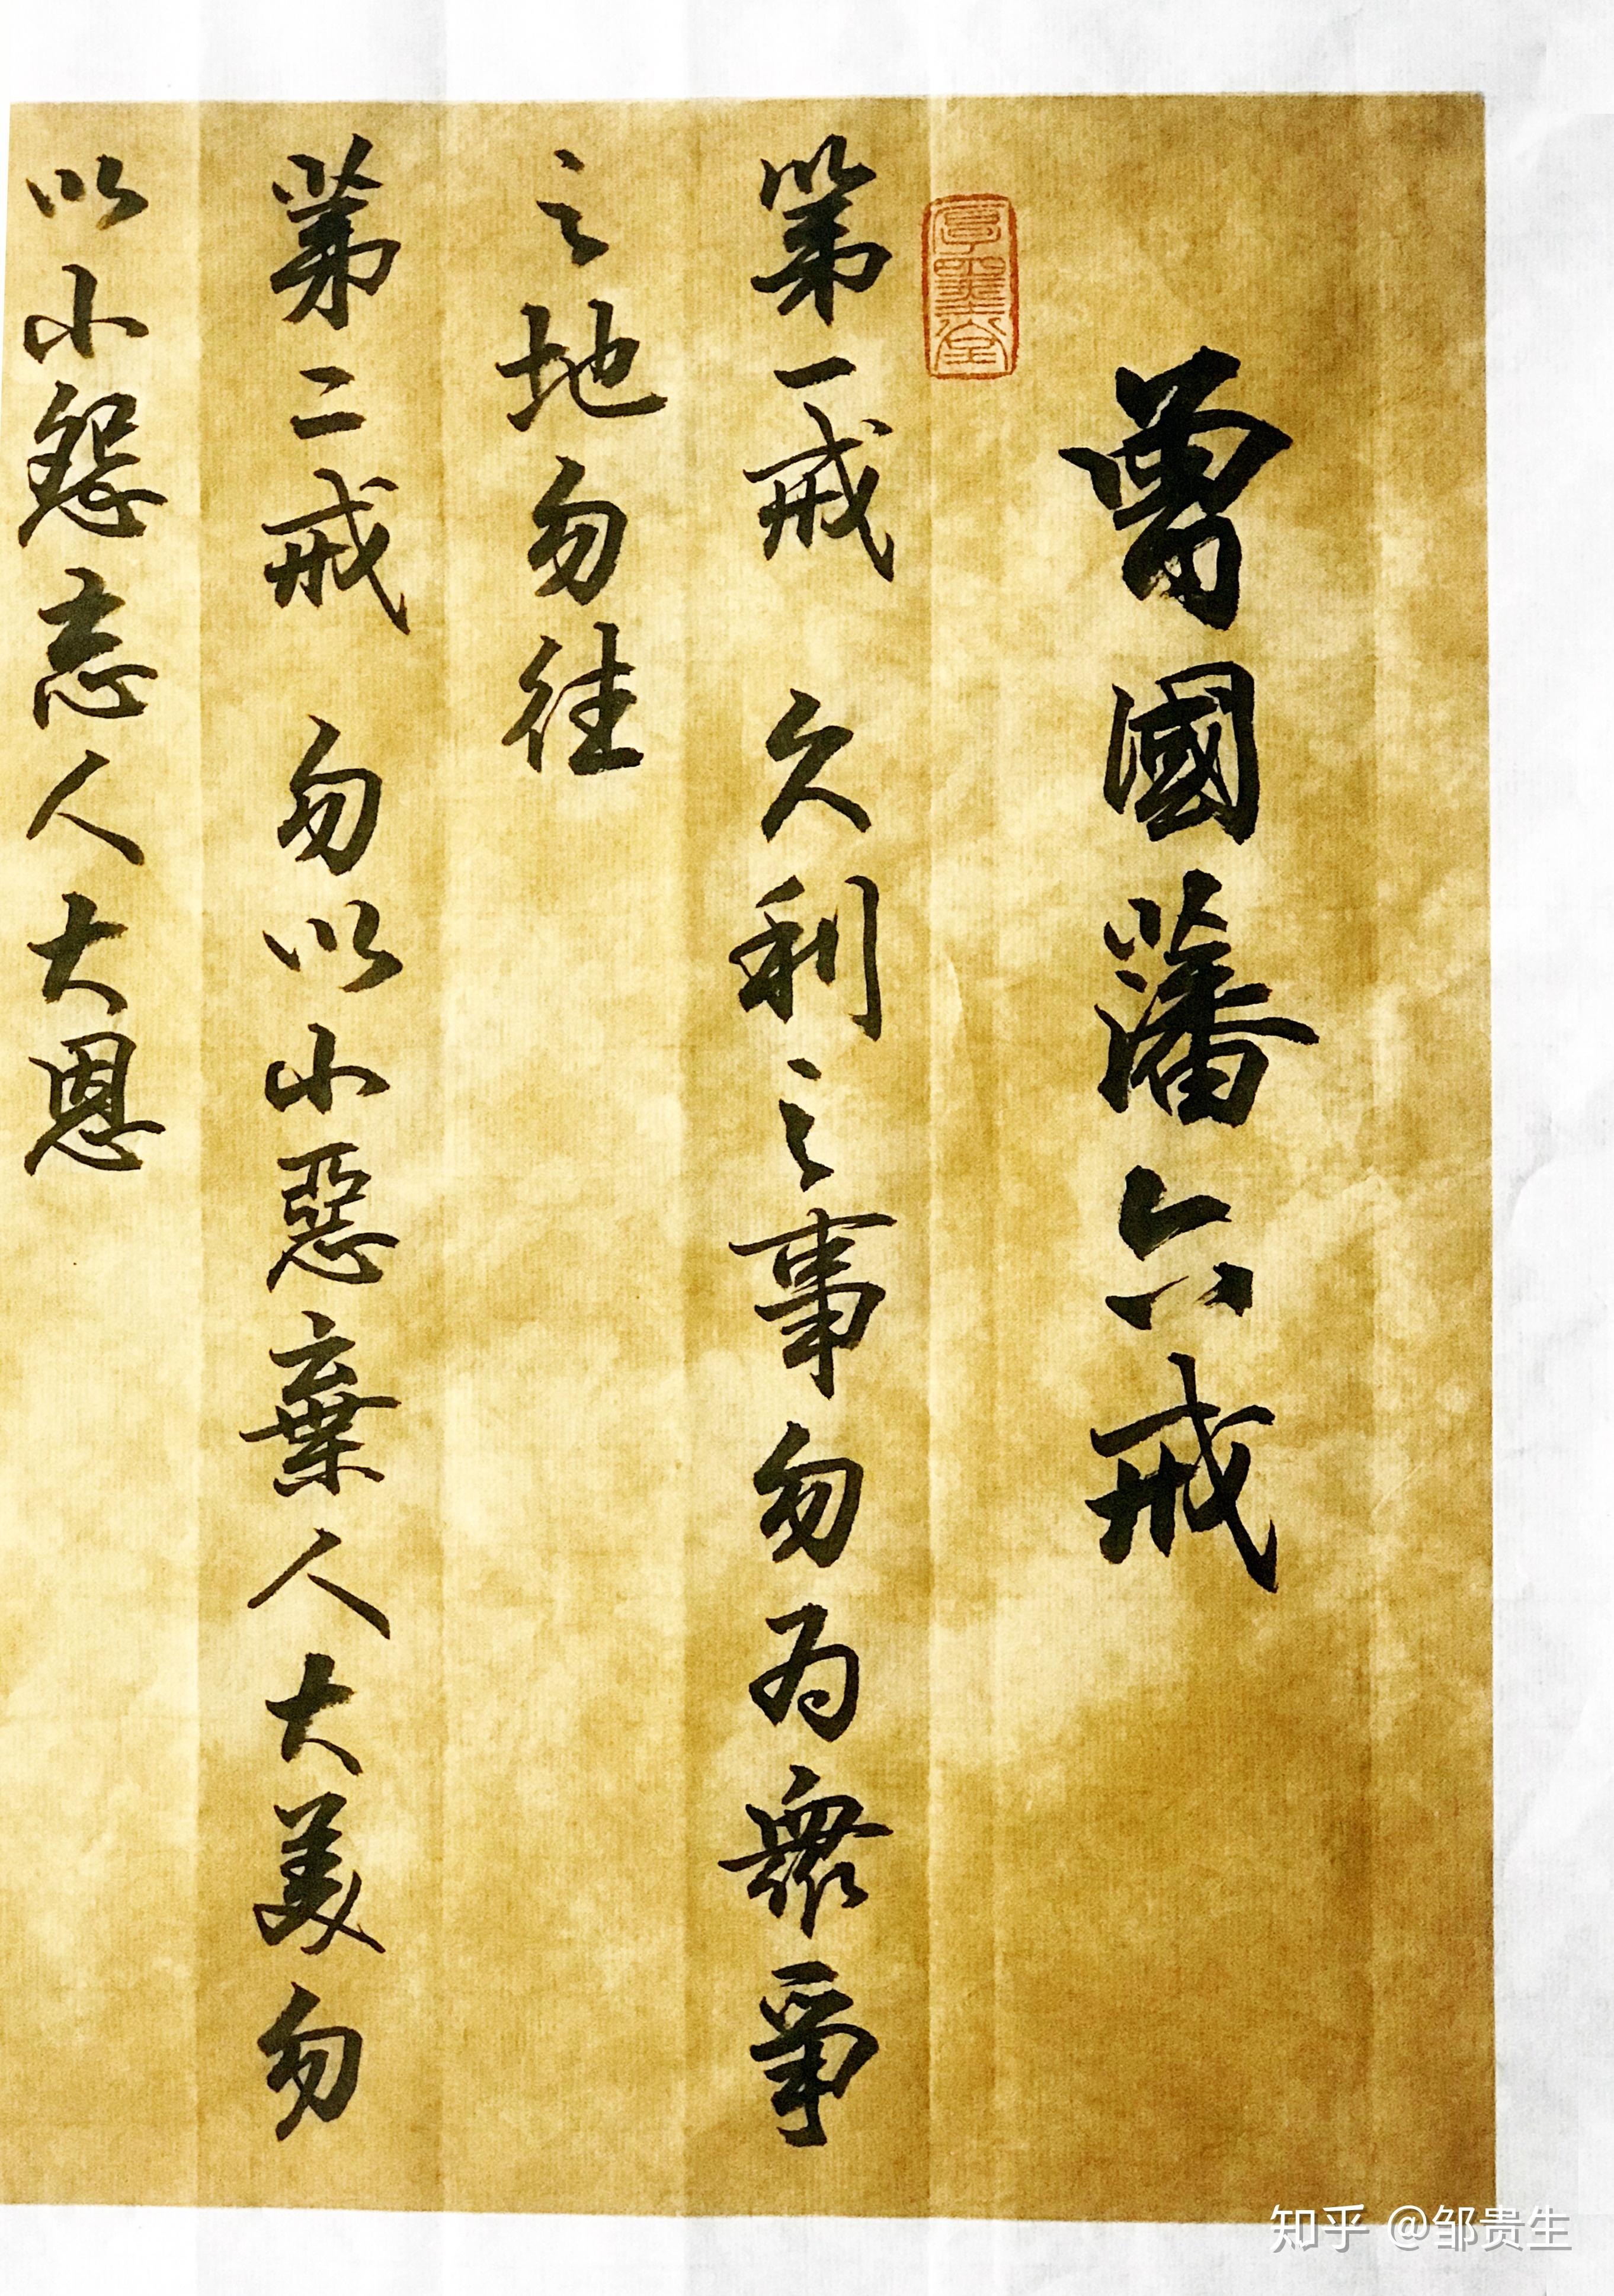 曾國藩六戒
第一戒 久利之事勿為衆爭
之地勿往
第二戒 勿以小惡棄人大美勿
以小怨忘人大恩
知乎 @邹贵生